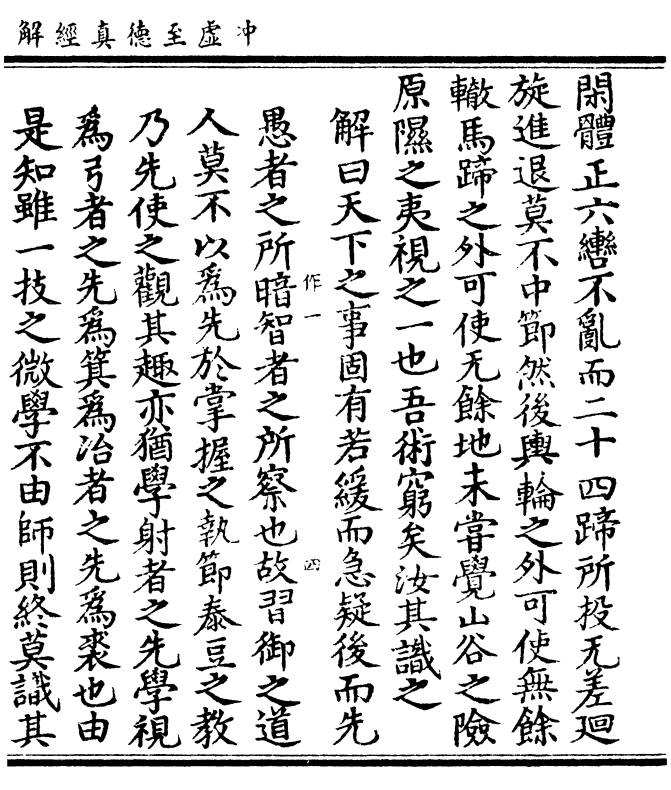 冲虛至德真經解
閑體正六轡不亂而二十四蹄所投无差迴
旋進退莫不中節然後輿輪之外可使無餘
轍馬蹄之外可使无餘地未嘗覺山谷之險
原隰之夷視之一也吾術窮矣汝其識之
解曰天下之事固有若緩而急疑後而先
愚者之所暗智者之所察也故習御之道
作一
四
人莫不以爲先於掌握之執節泰豆之教
乃先使之觀其趣亦猶學射者之先學視
爲弓者之先爲箕爲冶者之先爲裘也由
是知雖一技之微學不由師則終莫識其